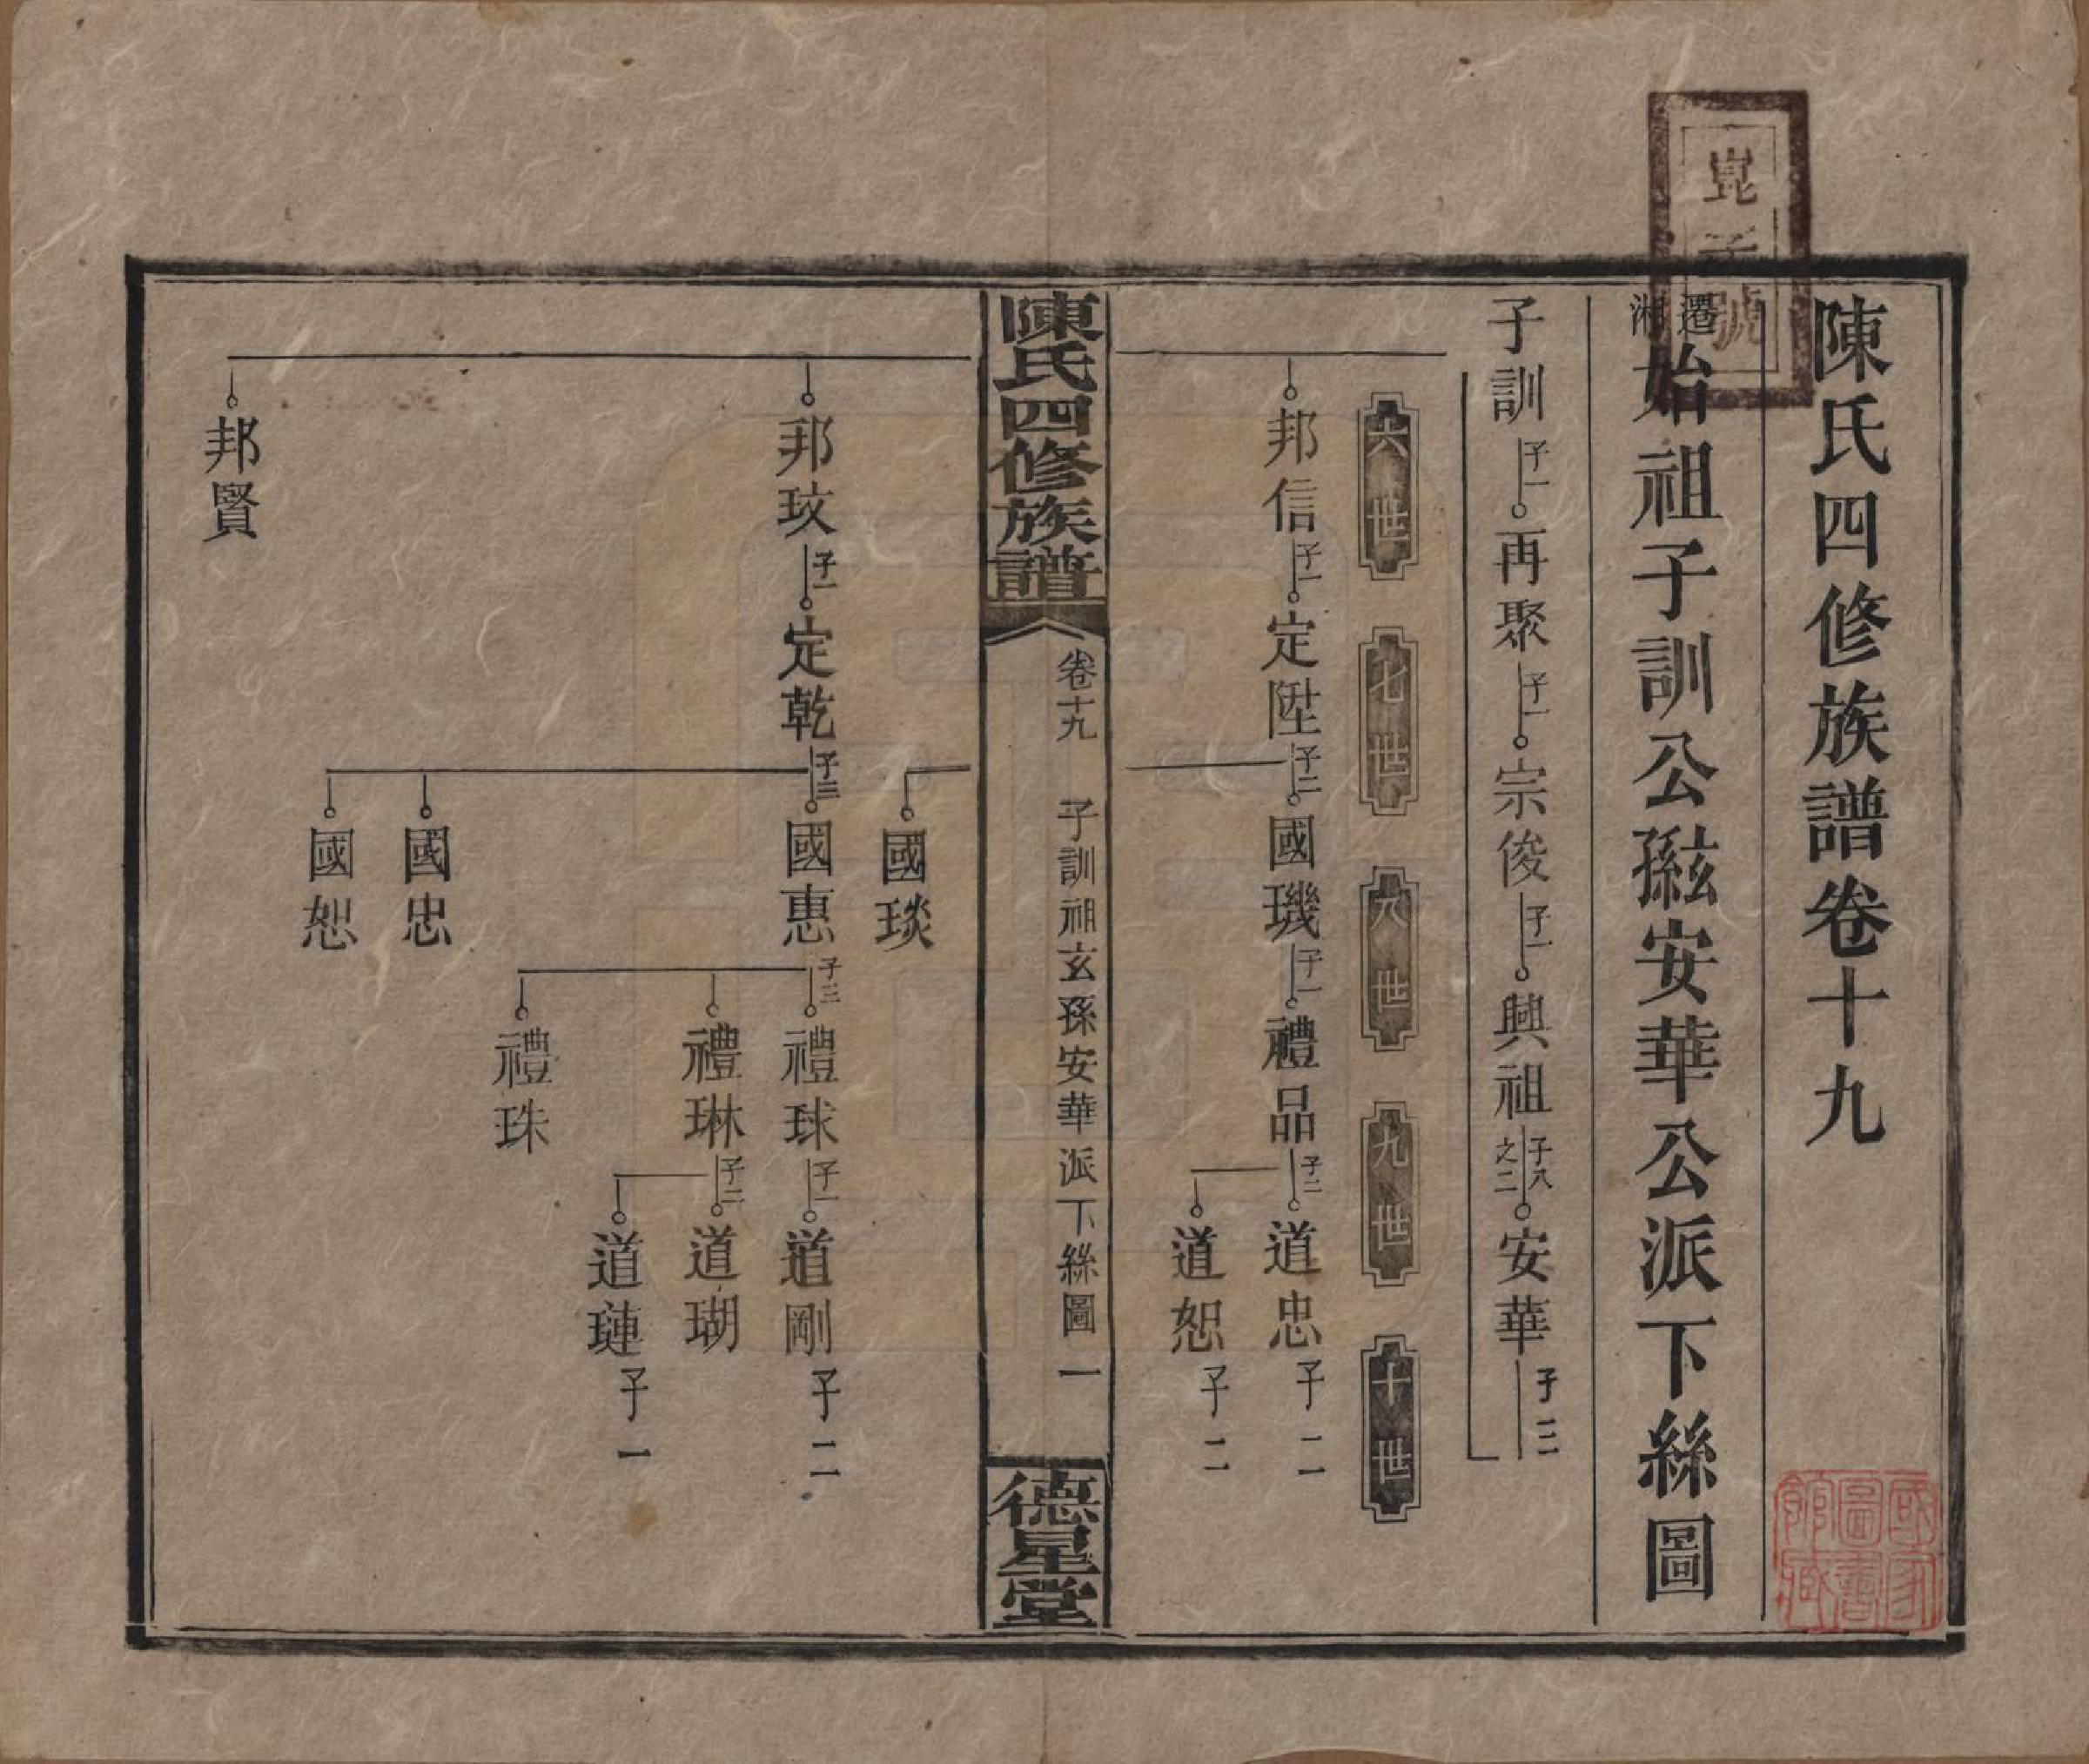 陳氏四修族譜卷十九
遷湘始祖子訓公玄孫安華公派下系圖
子訓 子一 再聚 子一 宗俊 子一 興祖 子八之二 安華 子三
六世 七世 八世 九世 十世
邦信 子一 定陞 子二 國璣 子一 禮品 子二 道忠 子二
道恕 子二
陳氏四修族譜 卷十九 子訓祖玄孫安華派下系圖 一 德星堂
國琰
邦玟 子一 定乾 子三 國惠 子三 禮球 子一 道剛 子二
禮琳 子二 道瑚
道璉 子一
禮珠
國忠
國恕
邦賢
國家圖書館藏